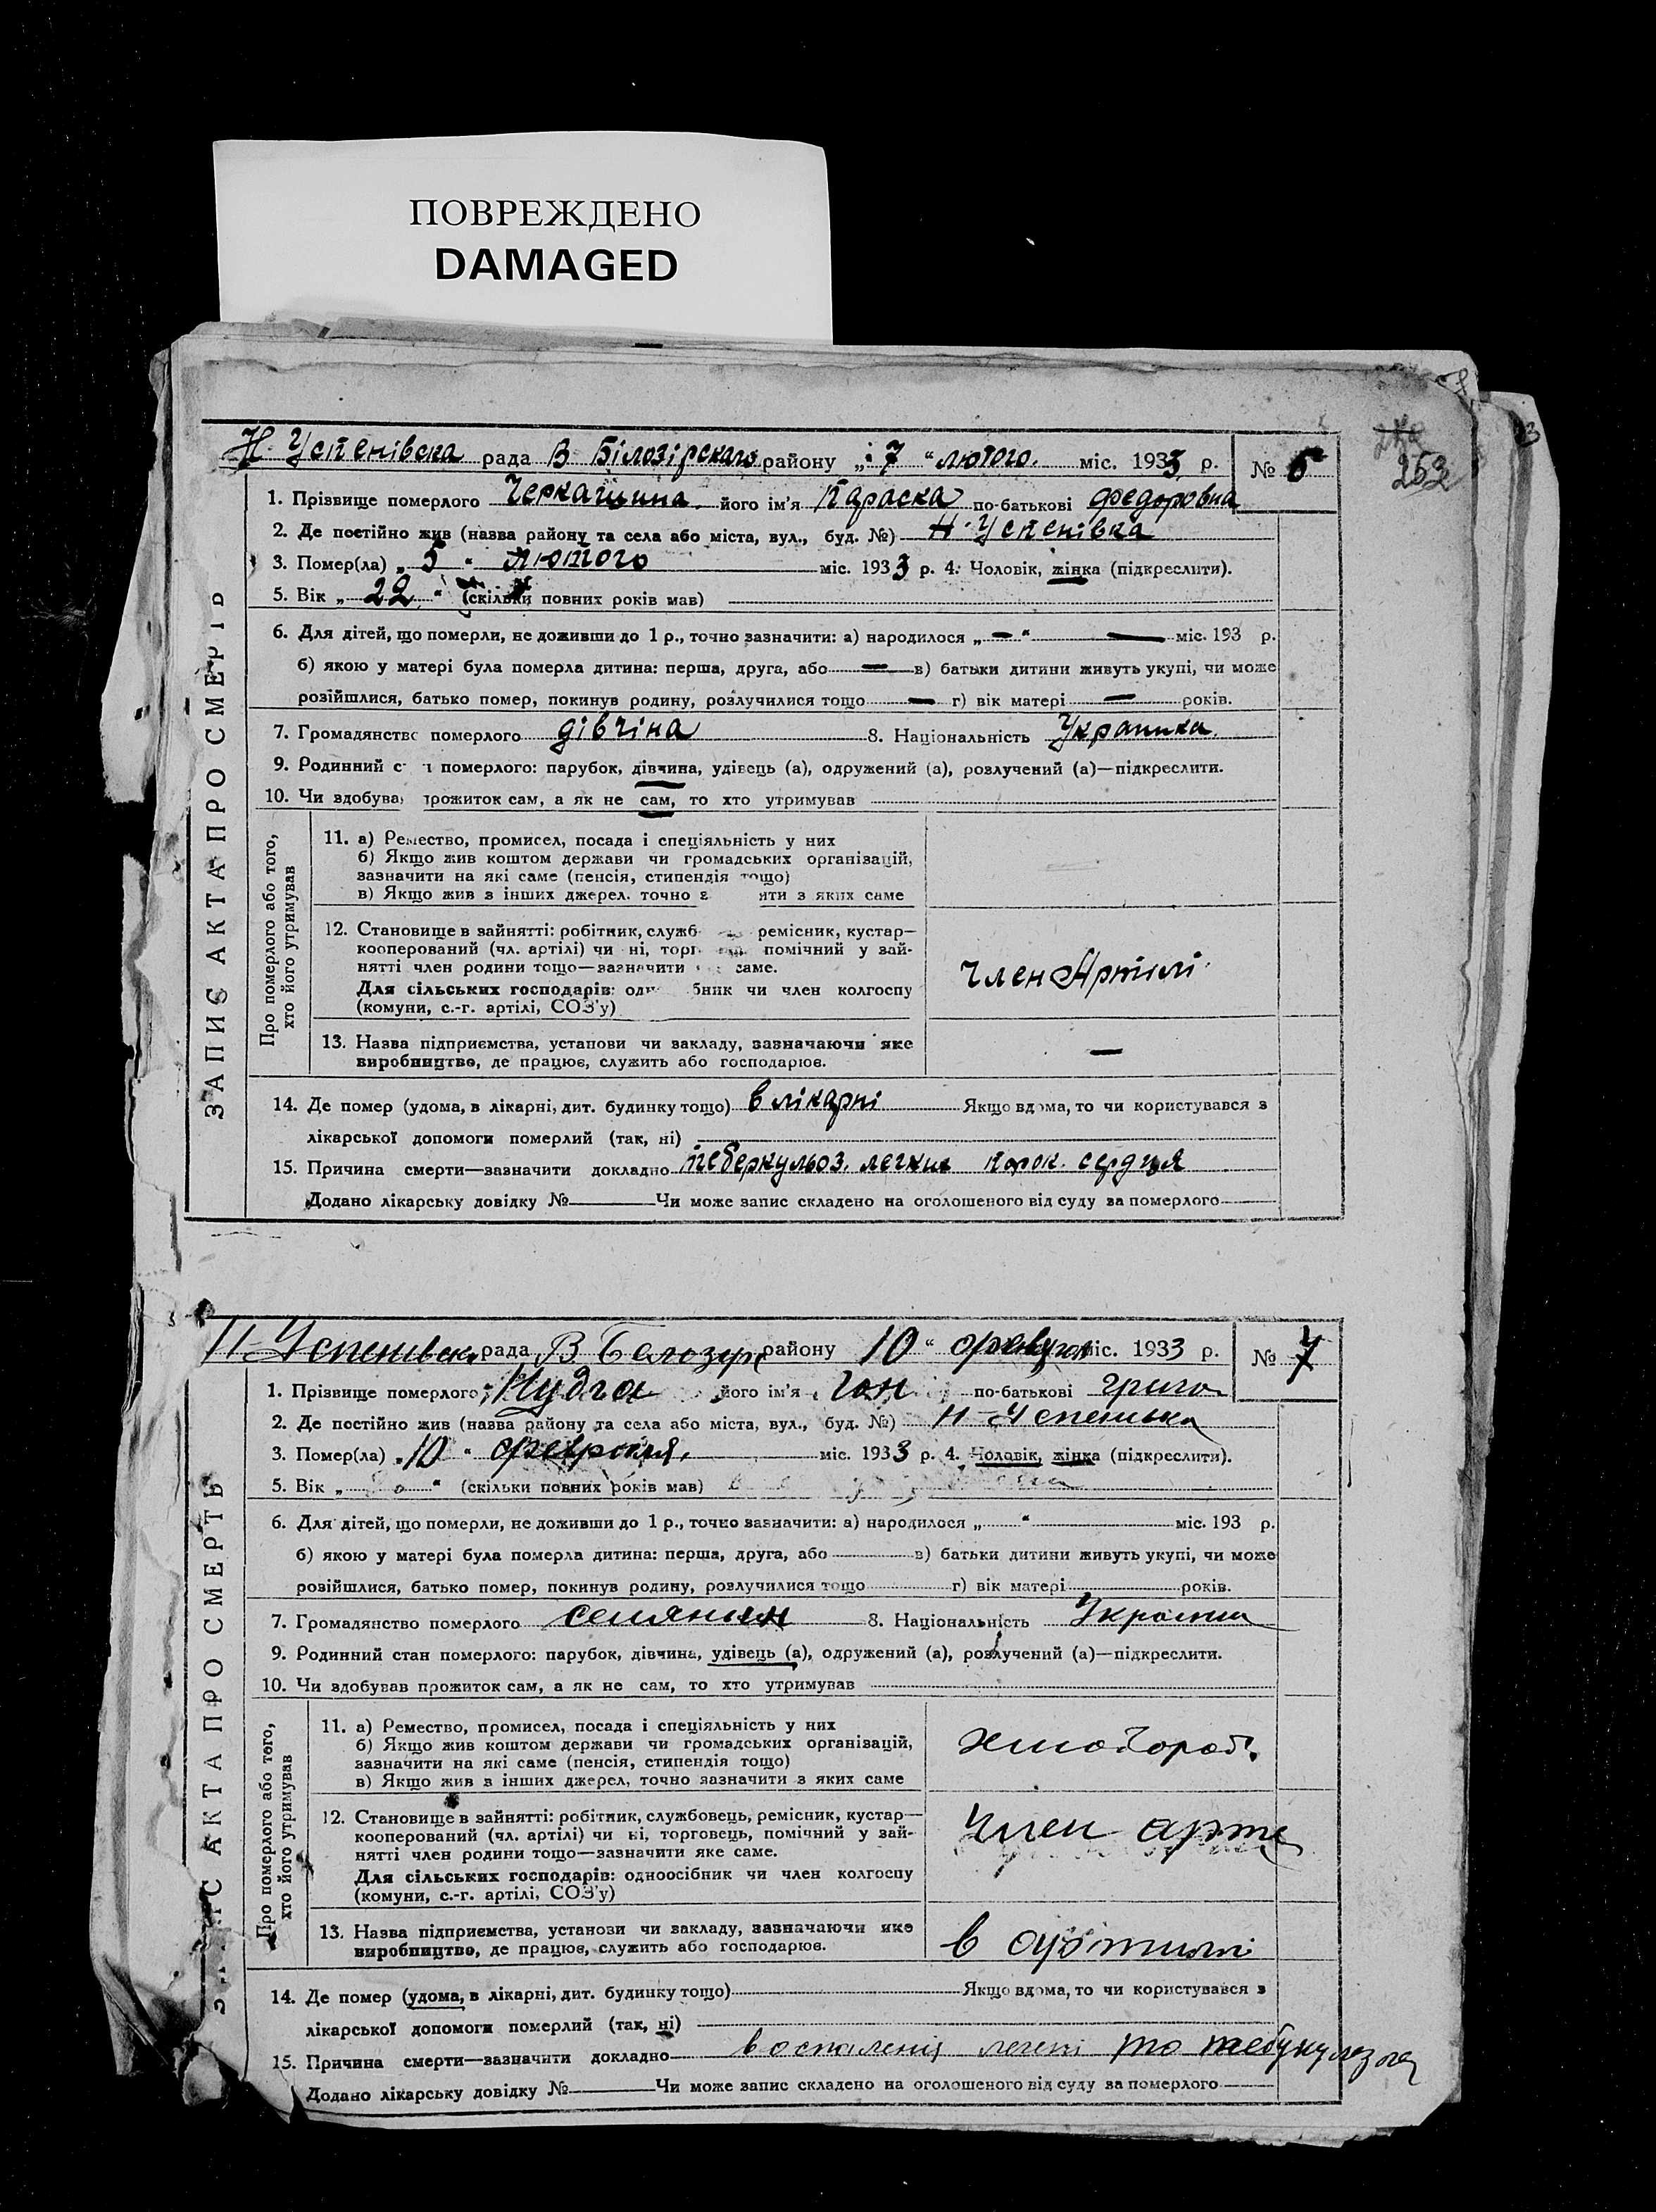 ПОВРЕЖДЕНО
DAMAGED
253
Н. Успенівська рада В Білозірского району „ 7 “ лютого. міс. 1933 р. №
1. Прізвище померлого Черкашина його ім'я Параска по-батькові Федоровна
2. Де постійно жив (назва району та села або міста, вул., буд. №) Н-Успенівка
3. Помер(ла) „ 5 “ лютого міс. 1933 р. 4. Чоловік, жінка (підкреслити).
5. Вік „ 22 “ (скільки повних років мав)
6. Для дітей, що померли, не доживши до 1 р., точно зазначити: а) народилося „ — “ — міс. 193 р.
б) якою у матері була померла дитина: перша, друга, або — в) батьки дитини живуть укупі, чи може
розійшлися, батько помер, покинув родину, розлучилися тощо — г) вік матері — років.
7. Громадянство померлого дівчіна 8. Національність Українка
9. Родинний померлого: парубок, дівчина, удівець (а), одружений (а), розлучений (а)—підкреслити.
10. Чи здобував прожиток сам, а як не сам, то хто утримував
ЗАПИС АКТА ПРО СМЕРТЬ
Про померлого або того,
хто його утримував
11. а) Ремество, промисел, посада і спеціяльність у них
б) Якщо жив коштом держави чи громадських організацій,
зазначити на які саме (пенсія, стипендія тощо)
в) Якщо жив з інших джерел. точно з яких саме
12. Становище в зайнятті: робітник, служб ремісник, кустар—
кооперований (чл. артілі) чи ні, торг помічний у зай-
нятті член родини тощо—зазначити саме.
Для сільських господарів: чи член колгоспу
(комуни, с.-г. артілі, СОЗ'у)
Член Артілі
13. Назва підприємства, установи чи закладу, зазначаючи яке
виробництво, де працює, служить або господарює.
—
14. Де помер (удома, в лікарні, дит. будинку тощо) в лікарні Якщо вдома, то чи користувався з
лікарської допомоги померлий (так, ні)
15. Причина смерти—зазначити докладно теберкульоз. легких порок. сердця
Додано лікарську довідку № Чи може запис складено на оголошеного від суду за померлого
Н-Успенівська рада В Белозерс району 10 “ міс. 1933 р. № 7
1. Прізвище померлого Нудга його ім'я по-батькові Григо
2. Де постійно жив (назва району та села або міста, вул., буд. №)
3. Помер(ла) „ 10 “ февраля. міс. 1933 р. 4. Чоловік, жінка (підкреслити).
5. Вік „ “ (скільки повних років мав)
6. Для дітей, що померли, не доживши до 1 р., точно зазначити: а) народилося „ “ міс. 193 р.
б) якою у матері була померла дитина: перша, друга, або в) батьки дитини живуть укупі, чи може
розійшлися, батько помер, покинув родину, розлучилися тощо г) вік матері років.
7. Громадянство померлого селянин 8. Національність
9. Родинний стан померлого: парубок, дівчина, удівець (а), одружений (а), розлучений (а)—підкреслити.
10. Чи здобував прожиток сам, а як не сам, то хто утримував
АКТА ПРО СМЕРТЬ
Про померлого або того,
хто його утримував
11. а) Ремество, промисел, посада і спеціяльність у них
б) Якщо жив коштом держави чи громадських організацій,
зазначити на які саме (пенсія, стипендія тощо)
в) Якщо жив з інших джерел, точно зазначити з яких саме
12. Становище в зайнятті: робітник, службовець, ремісник, кустар—
кооперований (чл. артілі) чи ні, торговець, помічний у зай-
нятті член родини тощо—зазначити яке саме.
Для сільських господарів: одноосібник чи член колгоспу
(комуни, с.-г. артілі, СОЗ'у)
Член арте
13. Назва підприємства, установи чи закладу, зазначаючи яке
виробництво, де працює, служить або господарює.
в
14. Де помер (удома, в лікарні, дит. будинку тощо) Якщо вдома, то чи користувався з
лікарської допомоги померлий (так, ні)
15. Причина смерти—зазначити докладно воспаления легені
Додано лікарську довідку № Чи може запис складено на оголошеного від суду за померлого